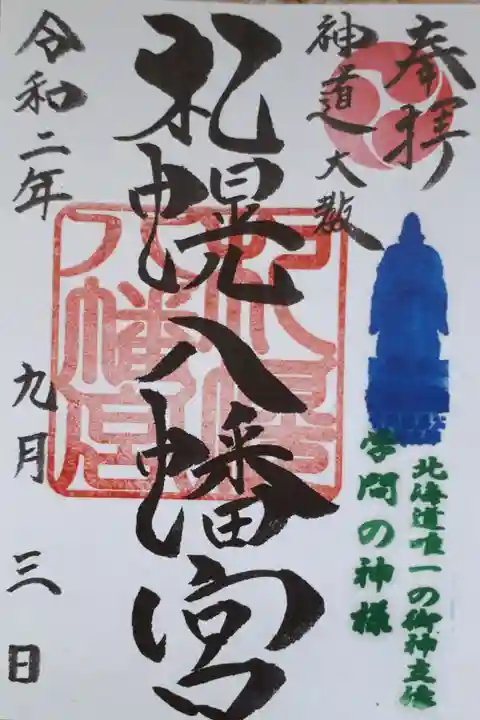 奉拝
神道大教
札幌八幡宮
令和二年
九月
三日
札幌
八幡宮
北海道唯一の御神立像
学問の神様